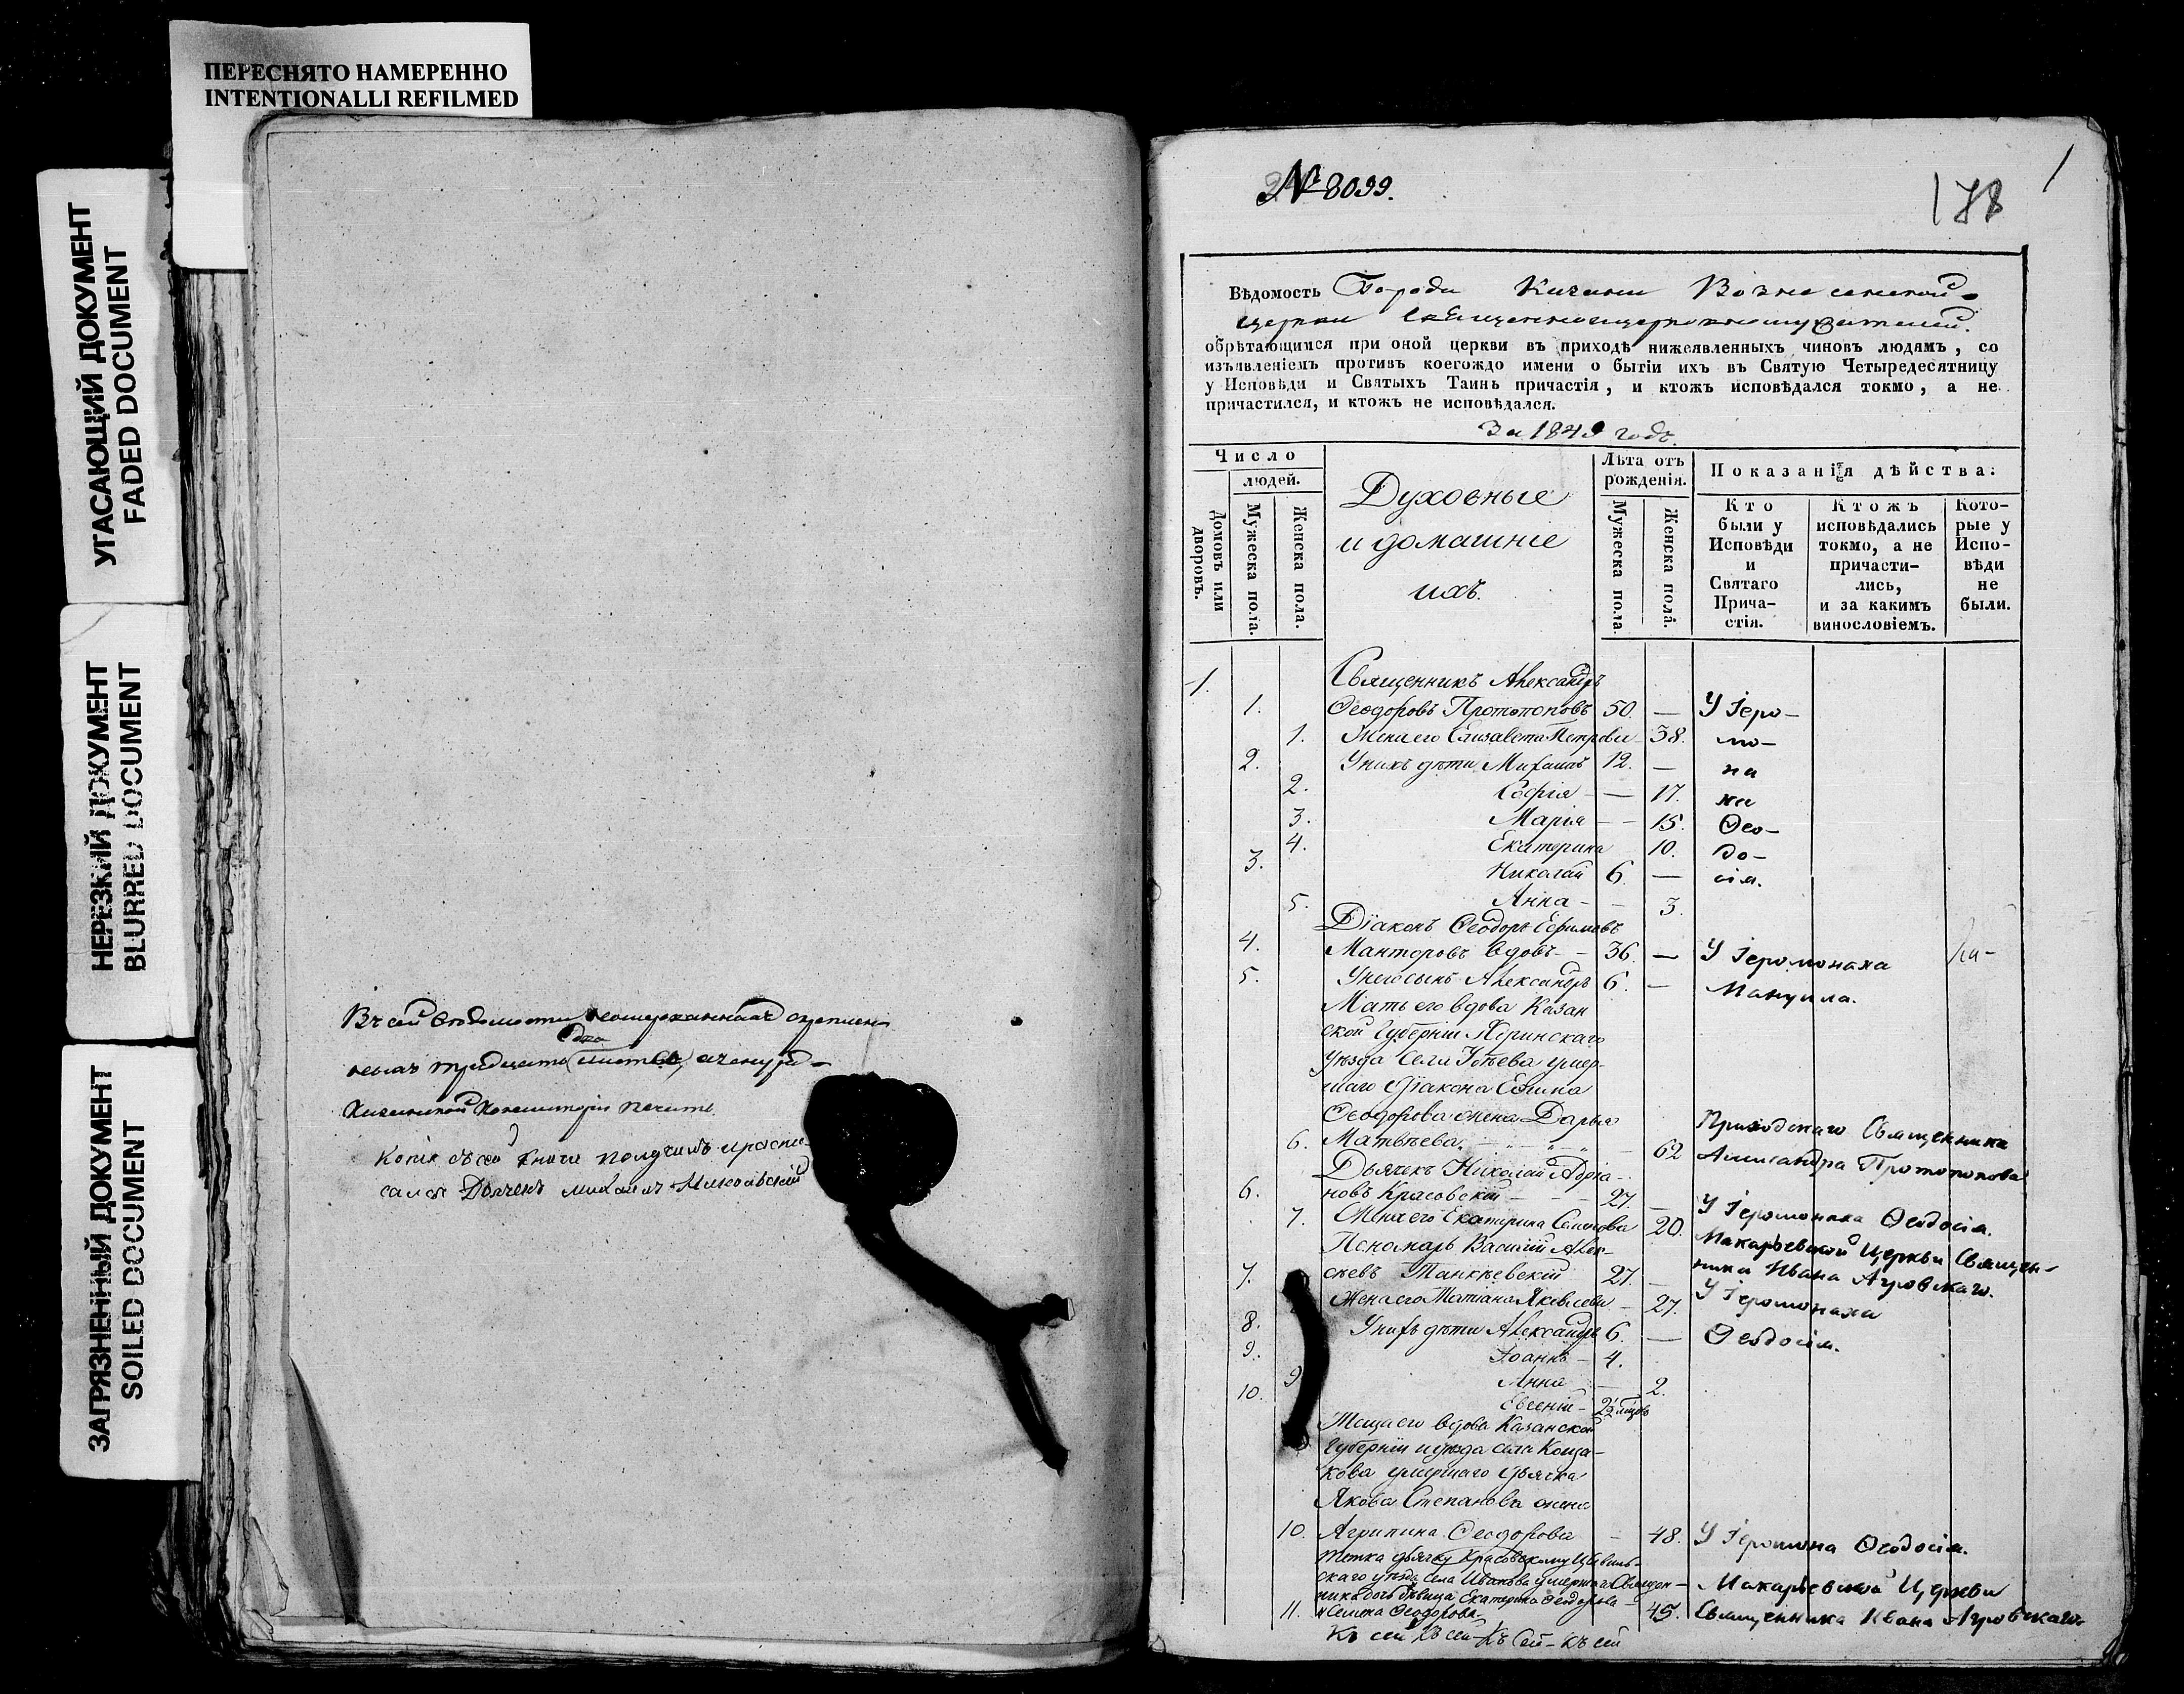 ПЕРЕСНЯТО НАМЕРЕННО
INTENTIONALLI REFILMED
УГАСАЮЩИЙ ДОКУМЕНТ
FADED DOCUMENT
НЕРЕЗКИЙ ДОКУМЕНТ
BLURRED DOCUMENT
ЗАГРЯЗНЕННЫЙ ДОКУМЕНТ
SOILED DOCUMENT
Въ сей
тридцать
Казанской Консисторіи печатью
Копію съ сей книги получилъ и роспи-
сался Дьячекъ Михаилъ
1
178
№ 8099.
Вѣдомость Города Казани Вознесенской
церкви Священноцерковнослужителей.
обрѣтающимся при оной церкви въ приходѣ нижеявленныхъ чиновъ людямъ, со
изъявленіемъ противъ коегождо имени о бытіи ихъ въ Святую Четыредесятницу
у Исповѣди и Святыхъ Таинъ причастія, и ктожъ исповѣдался токмо, а не
причастился, и ктожъ не исповѣдался.
За 1849 годъ.
Число
людей.
Домовъ или дворовъ.
Мужеска пола.
Женска пола.
Духовные
и домашніе
ихъ.
Лѣта отъ
рожденія.
Мужеска пола
Женска пола.
Показанія дѣйства:
Кто
были у
Исповѣди
и
Святаго
Прича-
стія.
Ктожъ
исповѣдались
токмо, а не
причасти-
лись,
и за какимъ
винословіемъ.
Кото-
рые у
Испо-
вѣди
не
были.
1. Священникъ Александръ
1. Ѳеодоровъ Протопоповъ 50. — У Іеро-
1. Жена его Елизавета Петрова 38. мо-
2. У нихъ дѣти Михаилъ 12. — на
2. Софія — 17. ха
3. Марія — 15. Ѳео-
4. Екатерина 10. до-
3. Николай 6. — сія.
5. Анна — 3.
Діаконъ Ѳеодоръ Ефимовъ
4. Манторовъ вдовъ — 36. — У Іеромонаха
5. У него сынъ Александръ 6. — Мануила.
Мать его вдова Казан
ской Губерніи
Уѣзда Села умер-
шаго Діакона Ефима
Ѳеодорова жена Дарья
6. Матвѣева 62 Приходскаго Священника
Александра Протопопова
Дьячекъ Николай Адріа-
6. новъ Красовскій — 27. — У Іеромонаха Ѳеодосія.
7. Жена его Екатерина Семенова 20. Макарьевской Церкви Священ-
ника Ивана Агровскаго.
Пономарь Василій Алек-
7. сѣевъ Танкѣевскій 27. — У Іеромонаха
Жена его Татіана Яковлева — 27. Ѳеодосія.
8. У нихъ дѣти Александръ 6. —
9. Іоаннъ — 4.
9 Анна — 2.
10. Евгеній —
Теща его вдова Казанской
Губерніи и уѣзда села Коща-
кова умершаго дьячка
Якова Степанова жена
10. Агрипина Ѳеодорова — 48. У Іеромона Ѳеодосія.
Тетка дьячку Красовскому Цивиль-
скаго уѣзда села Иванова умершаго Священ-
ника дочь дѣвица Екатерина Ѳеодорова — Макарьевской Церкви
11. Ѳеодорова 45. Священника Ивана Агровскаго.
Къ сей Къ сей Къ Сей Къ сей